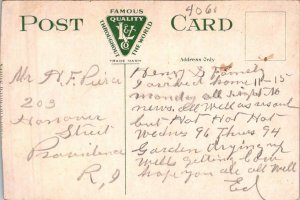 9060
POST CARD
FAMOUS
QUALITY
THROUGHOUT THE WORLD
TRADE MARK
Address Only
Mr H. F. Peirce
203
Hanover
Street
Providence
R, I
Henry & Family
I arrived home 11-15
monday all night
news. all well as usual
but Hot Hot Hot
Wednes 96 Thurs 94
Garden drying up
Well getting low
hope you are all well
Ed